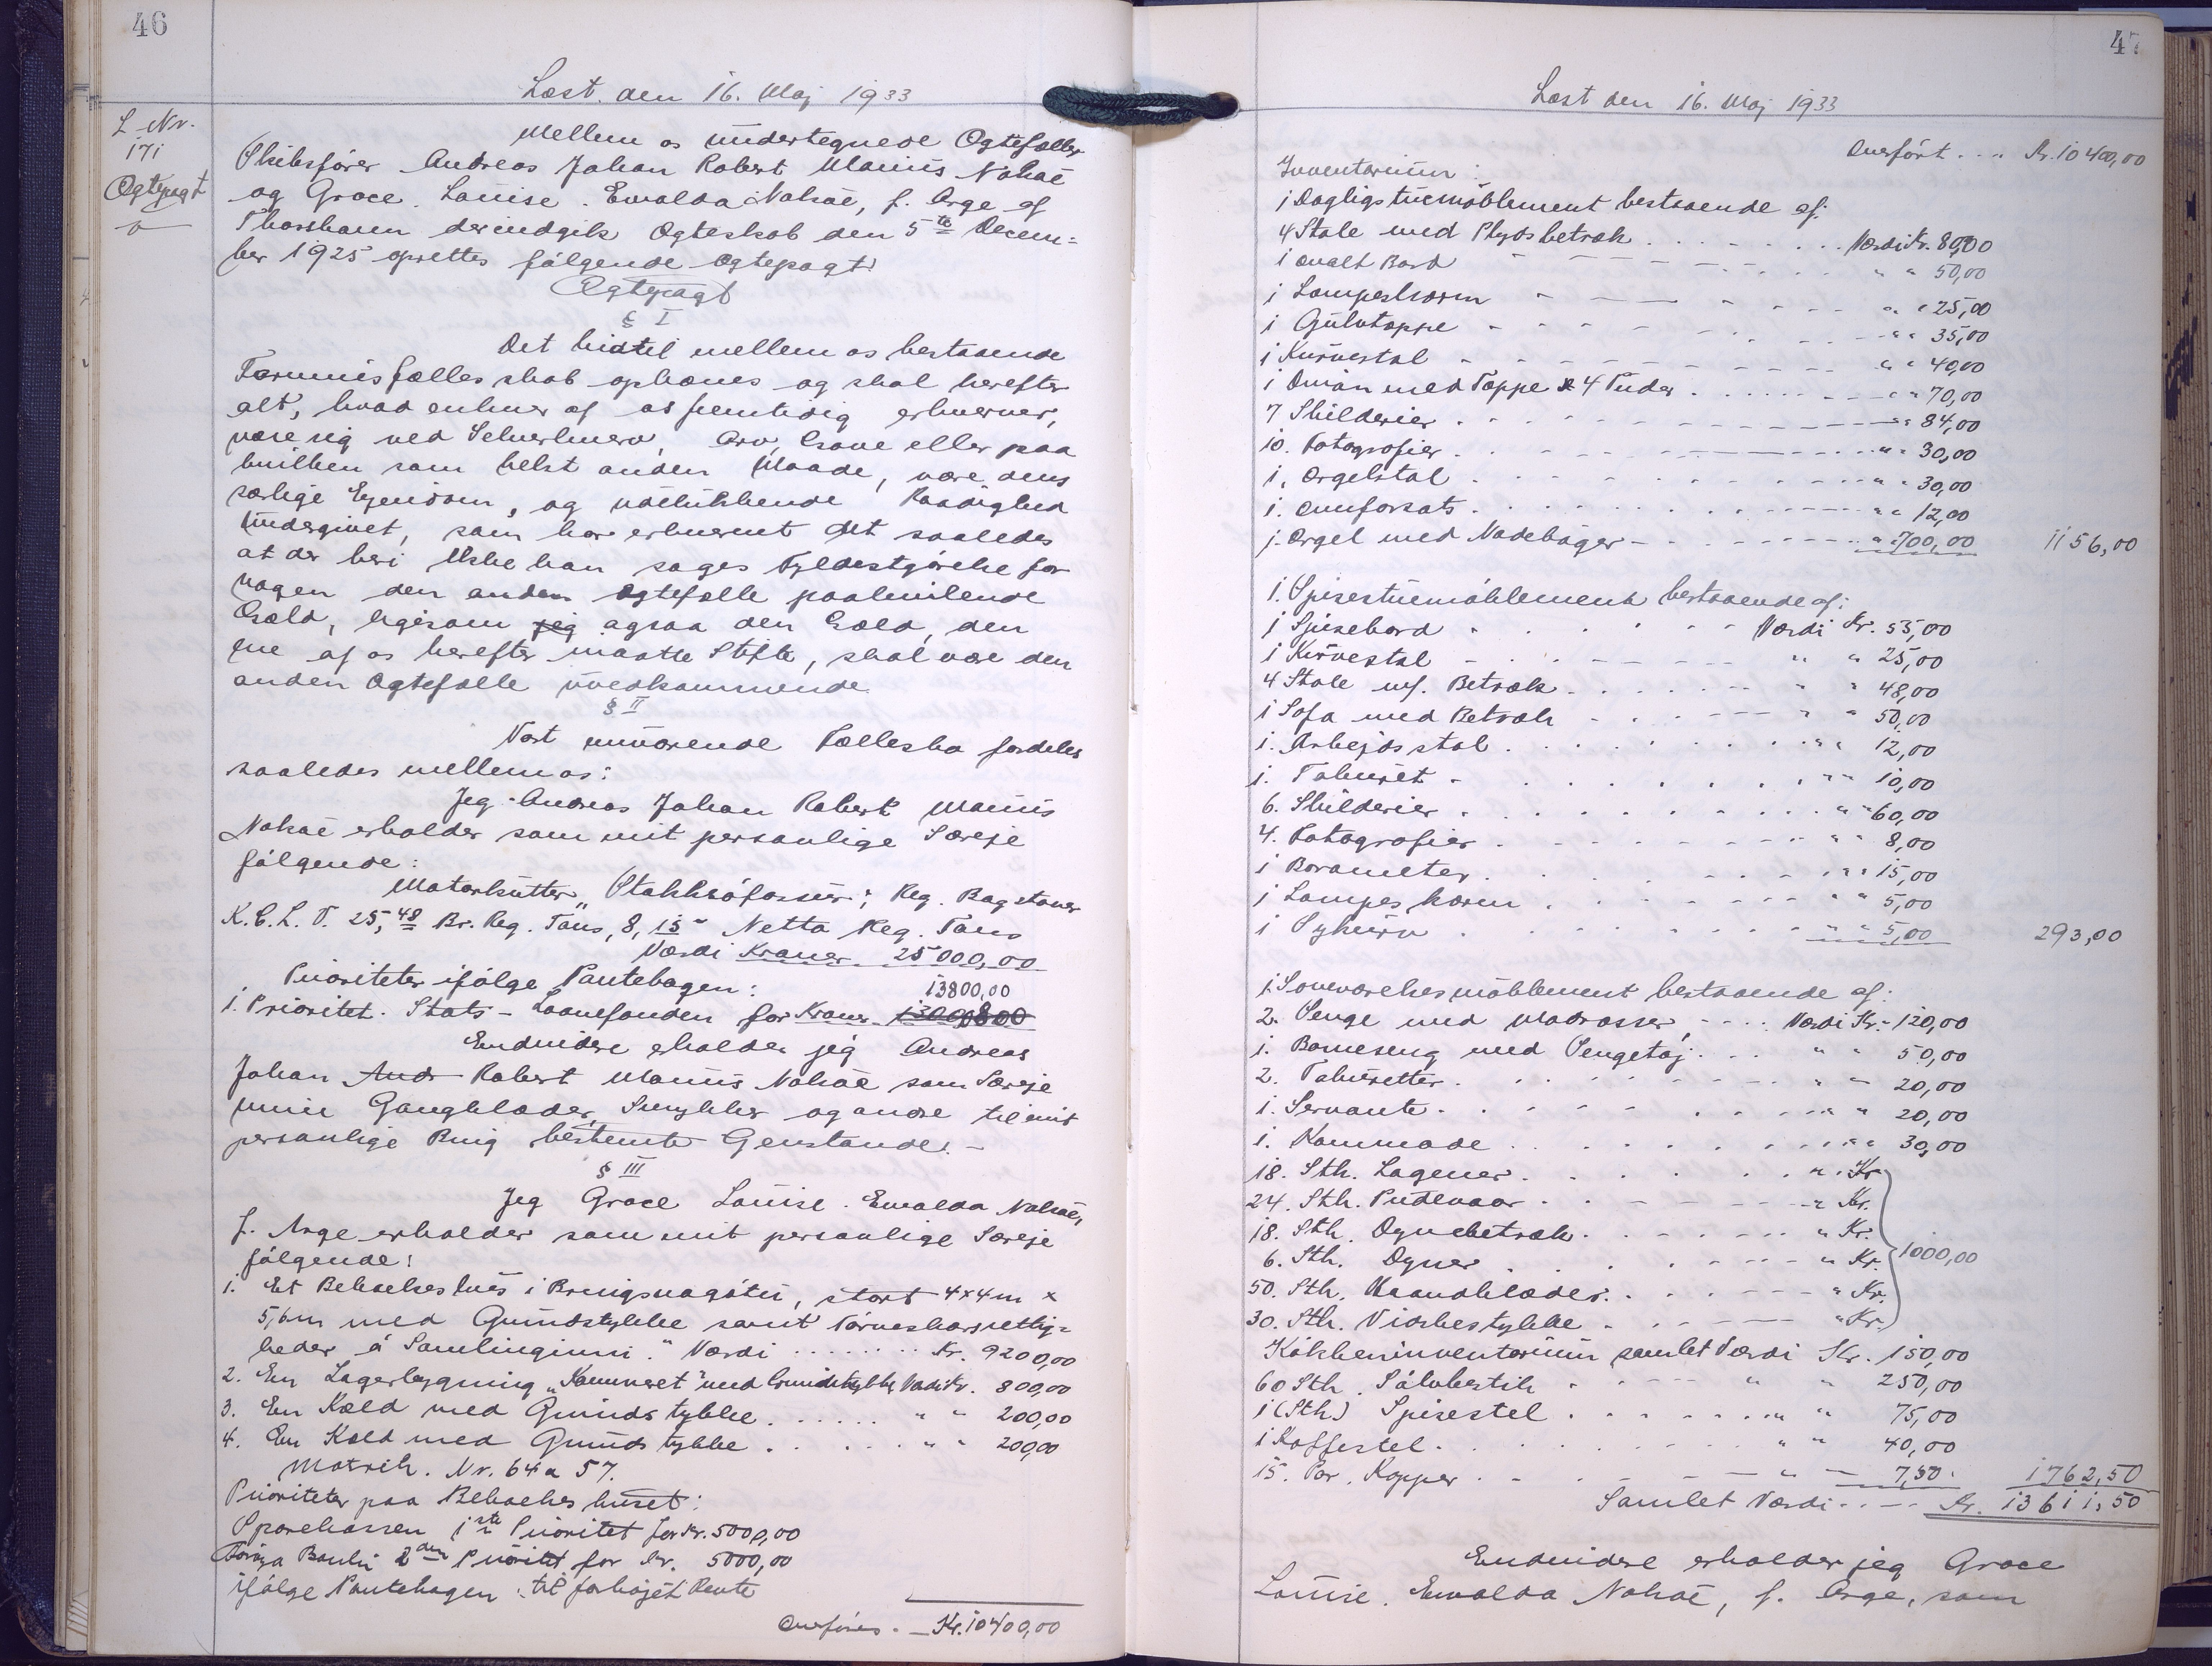 46
Læst. den 16. Maj 1933
L. Nr.
171
Ægtepagt
Mellem os undertegnede Ægtefæller
Skibsfører Andreas Johan Robert Marius Nolsøe
og Grace. Louise. Ewalda Nolsøe, f. Arge af
Thorshavn der indgik Ægteskab den 5te Decem=
ber 1925 oprettes følgende Ægtepagt
Ægtepagt
§ I
Det hidtil mellem os bestaaende
Formuesfællesskab ophæves og skal herefter
alt, hvad enhver af os fremtidig erhverver,
være sig ved Selverhverv, Arv, Gave eller paa
hvilken som helst anden Maade, være dens
særlige Ejendom, og udelukkende Raadighed
undergivet, som har erhvervet det saaledes
at der heri ikke kan søges Fyldestgørelse for
nogen den anden Ægtefælle paahvilende
Gæld, ligesom jeg ogsaa den Gæld, den
ene af os herefter maatte Stifte, skal være den
anden Ægtefælle uvedkommende.
§ II
Vort nuværende Fællesbo fordeles
saaledes mellem os:
Jeg Andreas Johan Robert Marius
Nolsøe erholder som mit personlige Særeje
følgende:
Motorkutter „ Reg. Bogstaver
K.C.L.T. 25,48 Br. Reg. Tons, 8,15 Netto Reg. Tons
Værdi Kroner 25000,00
Prioriteter ifølge Pantebogen: 13800,00
1. Prioritet. Stats-Laanefonden for Kroner
Endvidere erholder jeg Andreas
Johan And Robert Marius Nolsøe som Særeje
mine Gangklæder, Smykker og andre til mit
personlige Brug bestemte Genstande. -
§ III
Jeg Grace Louise. Ewalda Nolsøe,
f. Arge erholder som mit personlige Særeje
følgende:
1. Et Beboelseshus i Bringsnagøtu, stort 4x4m x
5,6m med Grundstykke samt Tørveskærsrettig=
heder á Værdi ........ Kr. 9200,00
2. En Lagerbygning „Kammeret" med Grundstykke Værdi Kr. 800,00
3. En Kæld med Grundstykke. ..... " " 200,00
4. En Kæld med Grundstykke. ..... " " 200,00
Matrik. Nr. 64 a 57.
Prioriteter paa Beboelseshuset:
Sparekassen 1ste Prioritet for Kr. 5000,00
Føroya Banki 2den Prioritet for Kr. 5000,00
ifølge Pantebogen til forhøjet Rente
Overføres. - Kr. 10400,00
47
Læst den 16. Maj 1933
Overført .... Kr. 10400,00
Inventarium:
1 Dagligstuemøblement bestaaende af:
4 Stole med Plydsbetræk ........ Værdi Kr. 80,00
1 ovalt Bord - - - " " 50,00
1 Lampeskærm - - - " " 25,00
1 Gulvtæppe - - - " " 35,00
1 Kurvestol - - - " " 40,00
1 Divan med Tæppe & 4 Puder .... " " 70,00
7 Skilderier ... " " 84,00
10. Fotografier ... " " 30,00
1. Orgelstol .... " " 30,00
1. Ovnforsats .... " " 12,00
1. Orgel med Nodebøger - - - " 700,00 1156,00
1. Spisestuemøblement bestaaende af:
1 Spisebord ..... Værdi Kr. 55,00
1 Kurvestol - - - " " 25,00
4 Stole m/. Betræk ..... " " 48,00
1 Sofa med Betræk - - - " " 50,00
1. Arbejdsstol ..... " " 12,00
1. Taburet ..... " " 10,00
6. Skilderier ..... " " 60,00
4. Fotografier ..... " " 8,00
1 Barometer ..... " " 15,00
1 Lampeskærm ..... " " 5,00
1 Sykurv ..... " " 5,00 293,00
1. Soveværelsesmøblement bestaaende af:
2. Senge med Madrasser, .... Værdi Kr. 120,00
1. Barneseng med Sengetøj ... " " 50,00
2. Taburetter ..... " " 20,00
1. Servante ..... " " 20,00
1. Kommode ..... " " 30,00
18. Stk. Lagener ..... " Kr.
24. Stk. Pudevaar ..... " Kr.
18. Stk. Dynebetræk ..... " Kr.
6. Stk. Dyner ..... " Kr. 1000,00
50. Stk. Haandklæder ..... " Kr.
30. Stk. Viskestykke ..... " Kr.
Køkkeninventarium samlet Værdi Kr. 150,00
60 Stk. Sølvbestik ..... " " 250,00
1 (Stk) Spisestel ..... " " 75,00
1 Kaffestel ..... " " 40,00
15. Par. Kopper ..... " - 7,50. 1762,50
Samlet Værdi .... Kr. 13611,50
Endvidere erholder jeg Grace
Louise. Ewalda Nolsøe, f. Arge, som